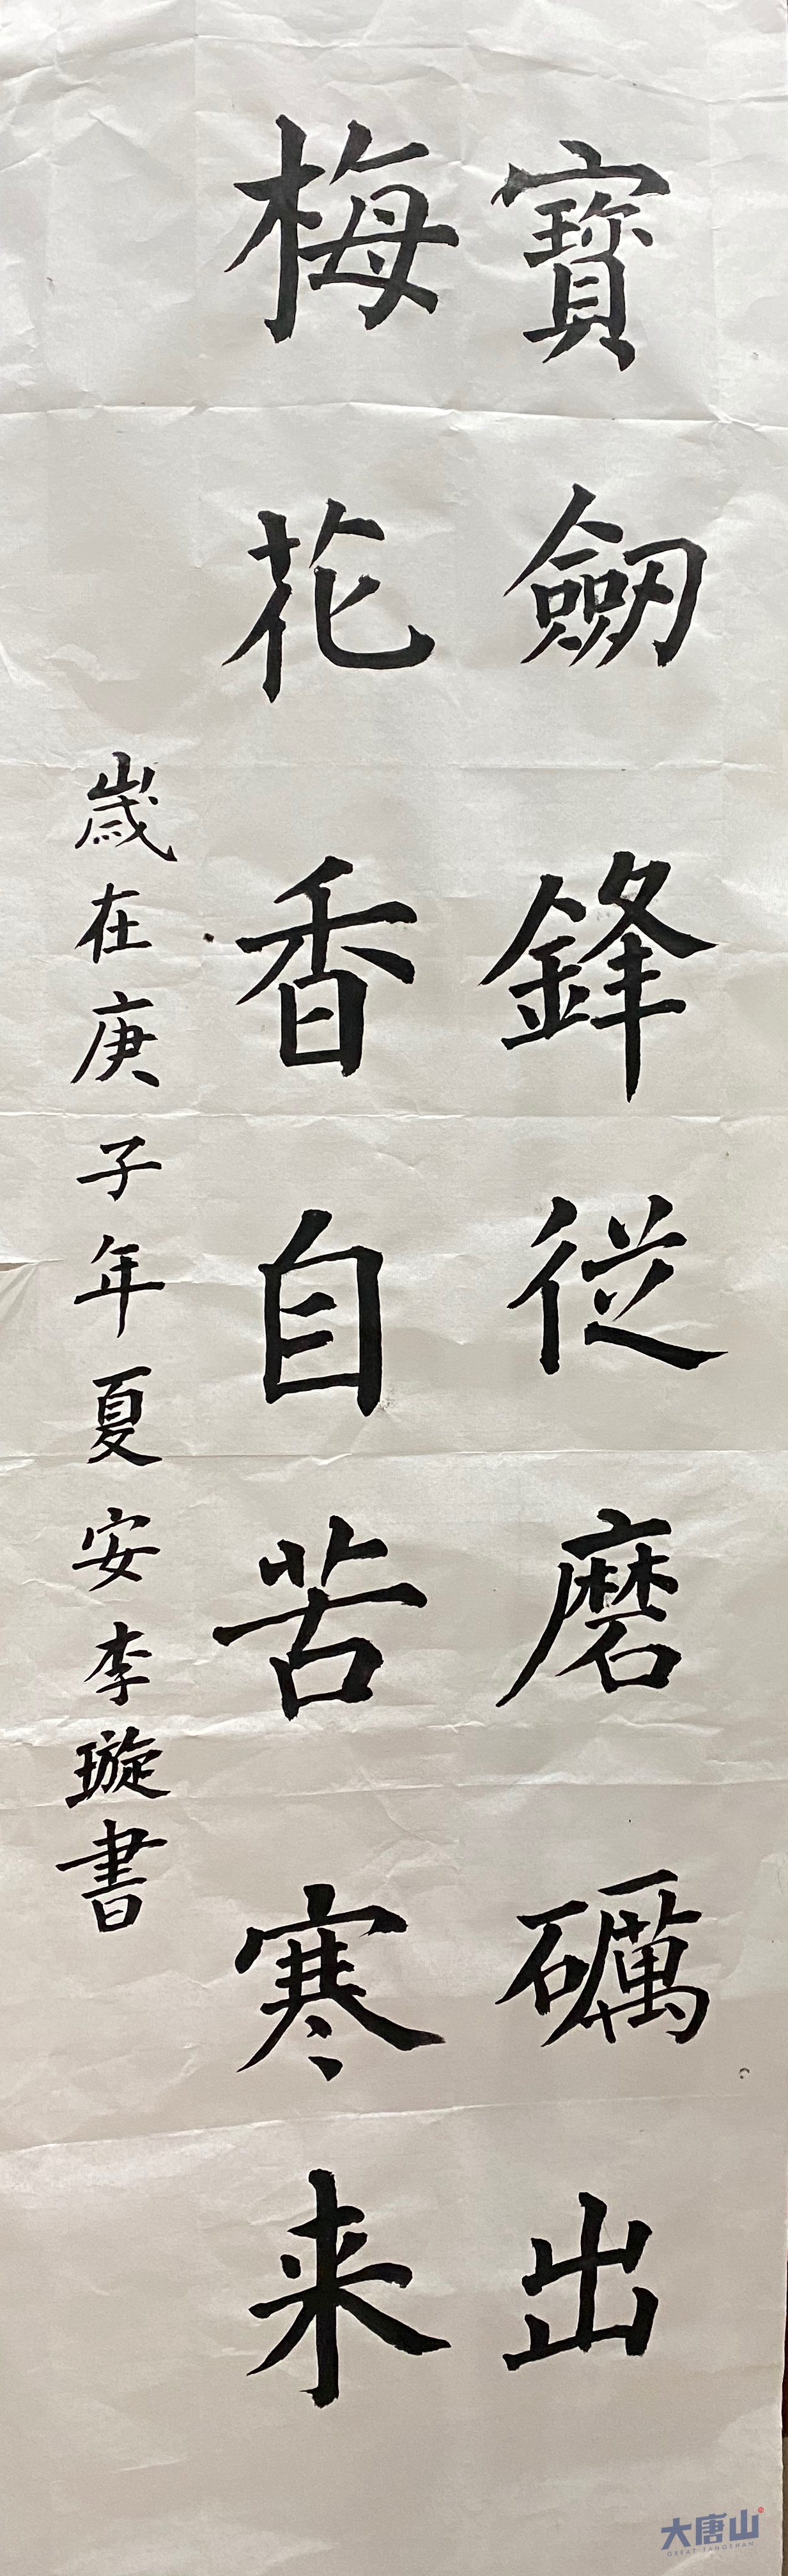 寳劒鋒從磨礪出
梅花香自苦寒来
歲在庚子年夏安李璇書
大唐山
GREAT TANGSHAN